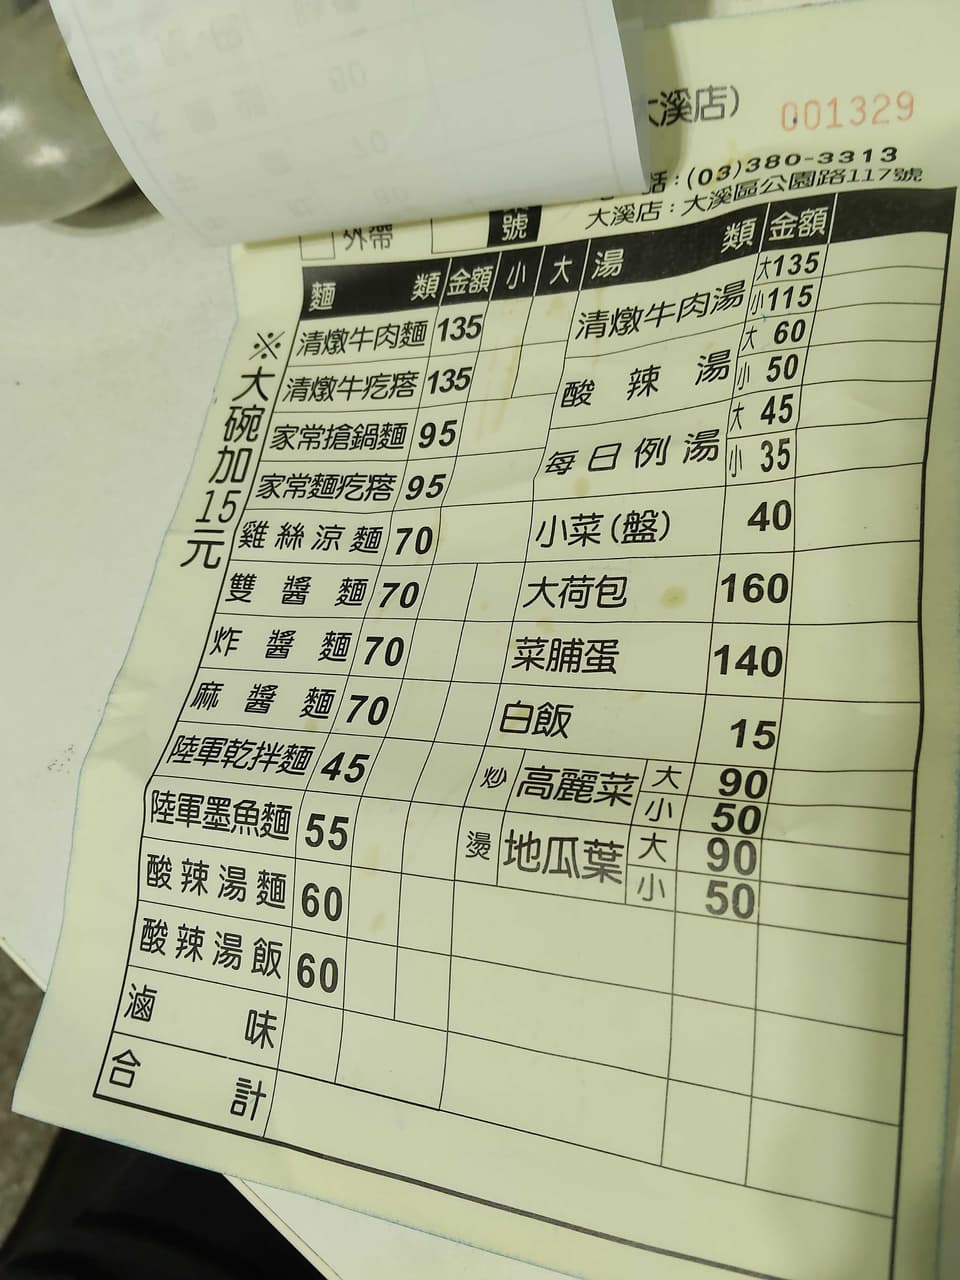 大溪店)
001329
話:(03)380-3313
大溪店:大溪區公園路117號
外帶
號
麵 類 金額 小 大 湯 類 金額
※大碗加15元
清燉牛肉麵 135
清燉牛疙瘩 135
家常搶鍋麵 95
家常麵疙瘩 95
雞絲涼麵 70
雙醬麵 70
炸醬麵 70
麻醬麵 70
陸軍乾拌麵 45
陸軍墨魚麵 55
酸辣湯麵 60
酸辣湯飯 60
滷味
合計
清燉牛肉湯 大 135
小 115
酸辣湯 大 60
小 50
每日例湯 大 45
小 35
小菜(盤) 40
大荷包 160
菜脯蛋 140
白飯 15
炒 高麗菜 大 90
小 50
燙 地瓜葉 大 90
小 50